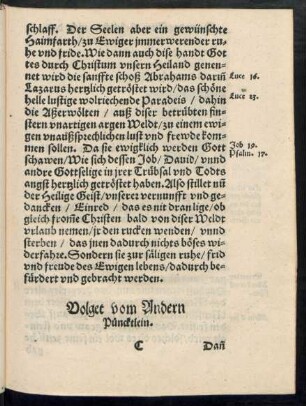 schlaff. Der Seelen aber ein gewünschte
Haimfarth/zu Ewiger jmmerwerender ru-
he vnd fride. Wie dann auch dise handt Got
tes durch Christum vnsern Heiland genen-
net wird die sanffte schoß Abrahams darin̄
Lazarus herzlich getröstet wird/das schöne
helle lustige wolriechende Paradeis / dahin
die Außerwölten / auß diser betrübten fin-
stern vnartigen argen Weldt/zu einem ewi-
gen vnaußsprechlichen lust vnd frewde kom-
men sollen. Da sie ewigklich werden Gott
schawen/Wie sich dessen Job/Dauid/vnnd
andre Gottselige in jrer Trübsal vnd Todts
angst herzlich getröstet haben. Also stillet nū
der Heilige Geist/vnserer vernunfft vnd ge-
dancken / Einred / das es nit dran lige/ob
gleich from̄e Christen bald von diser Weldt
vrlaub nemen/jr den rucken wenden / vnnd
sterben / das jnen dadurch nichts böses wi-
derfahre. Sondern sie zur säligen ruhe/ frid
vnd freude des Ewigen lebens/dadurch be-
fürdert vnd gebracht werden.
Luce 16.
Luce 23.
Job 19.
Psalm. 17.
Volget vom Andern
Püncktlein.
C Dan̄